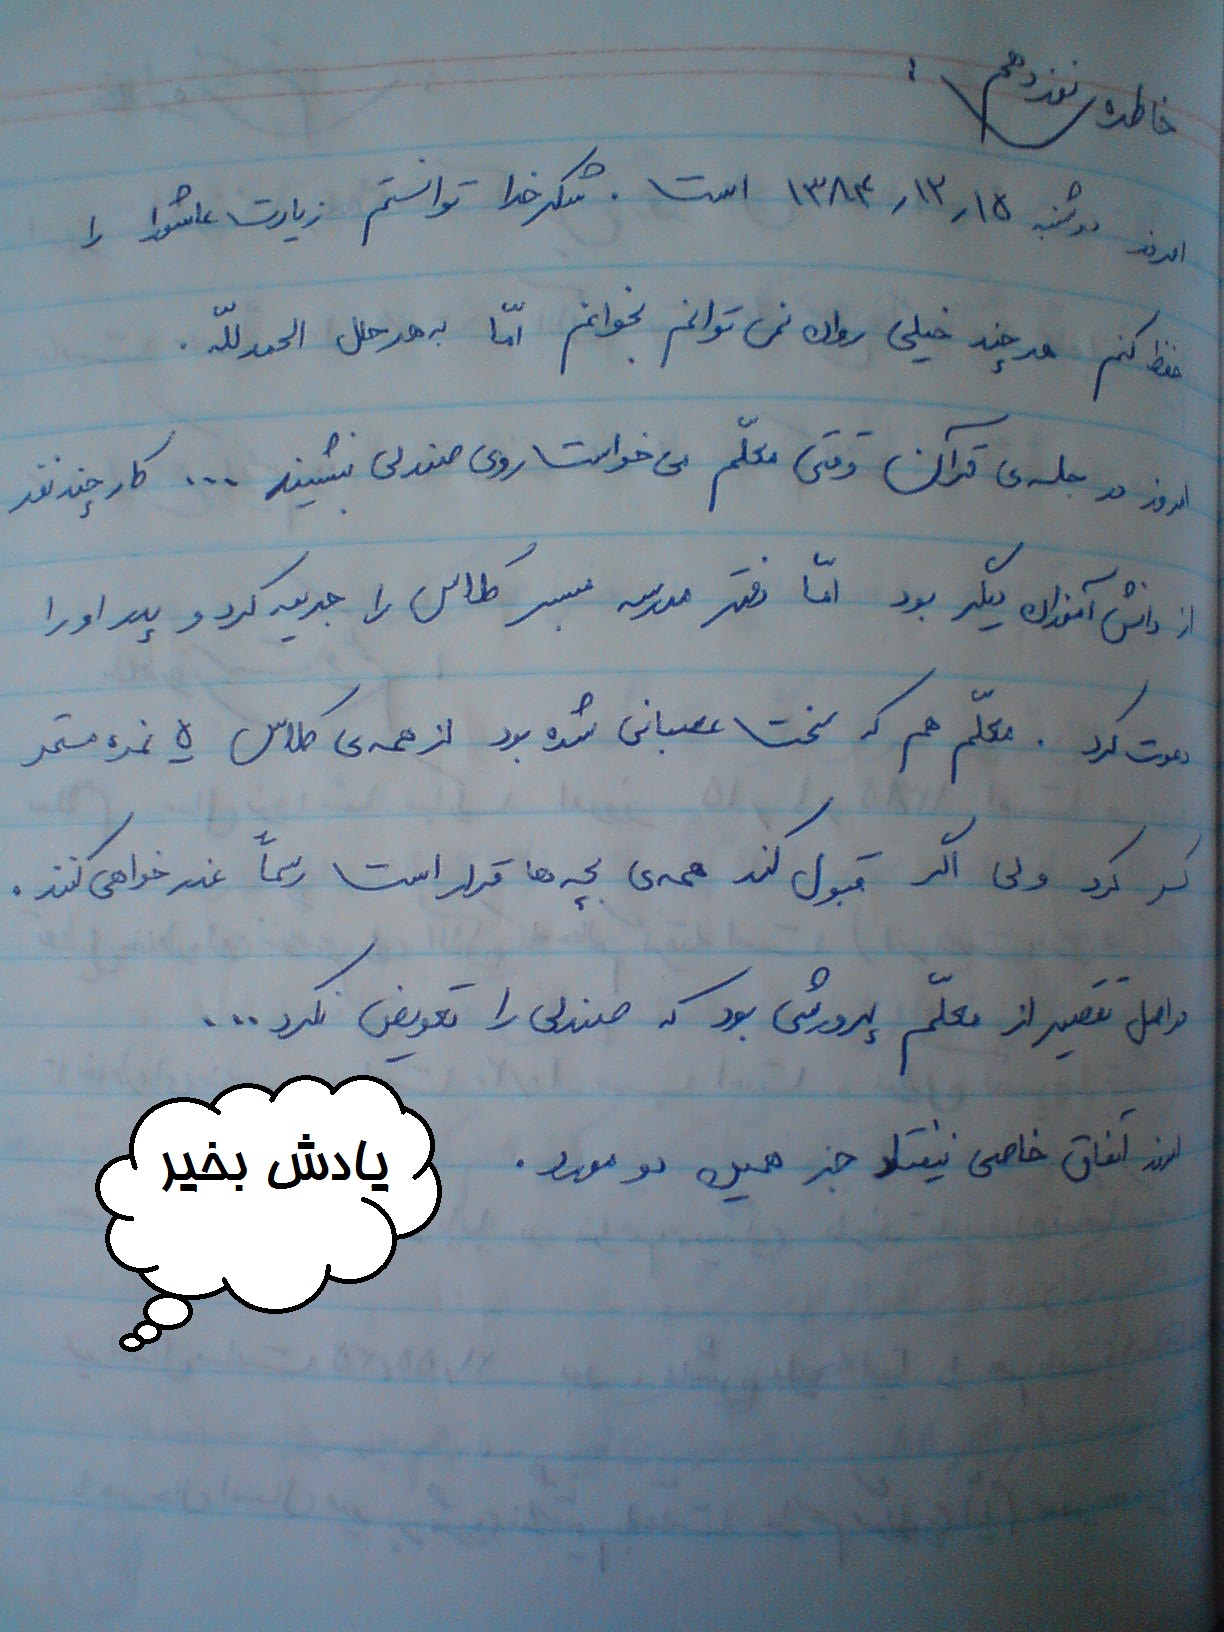 خاطره نوزدهم :
امروز دوشنبه ۱۵ ٫ ۱۲ ٫ ۱۳۸۴ است . شکر خدا توانستم زیارت عاشورا را
حفظ کنم هر چند خیلی روان نمی توانم بخوانم امّا به هر حال الحمدلله .
امروز در جلسه‌ی قرآن وقتی معلّم می خواست روی صندلی بنشیند ... کار چند نفر
از دانش آموزان دیگر بود امّا دفتر مدرسه مبصر کلاس را جریمه کرد و پدر او را
دعوت کرد . معلّم هم که سخت عصبانی شده بود از همه‌ی کلاس ۵ نمره مستمر
کسر کرد ولی اگر قبول کند همه‌ی بچه ها قرار است رسماً عذر خواهی کنند .
در اصل تقصیر از معلّم پرورشی بود که صندلی را تعویض نکرد ...
امروز اتفاق خاصی نیفتاد جز همین دو مورد .
یادش بخیر